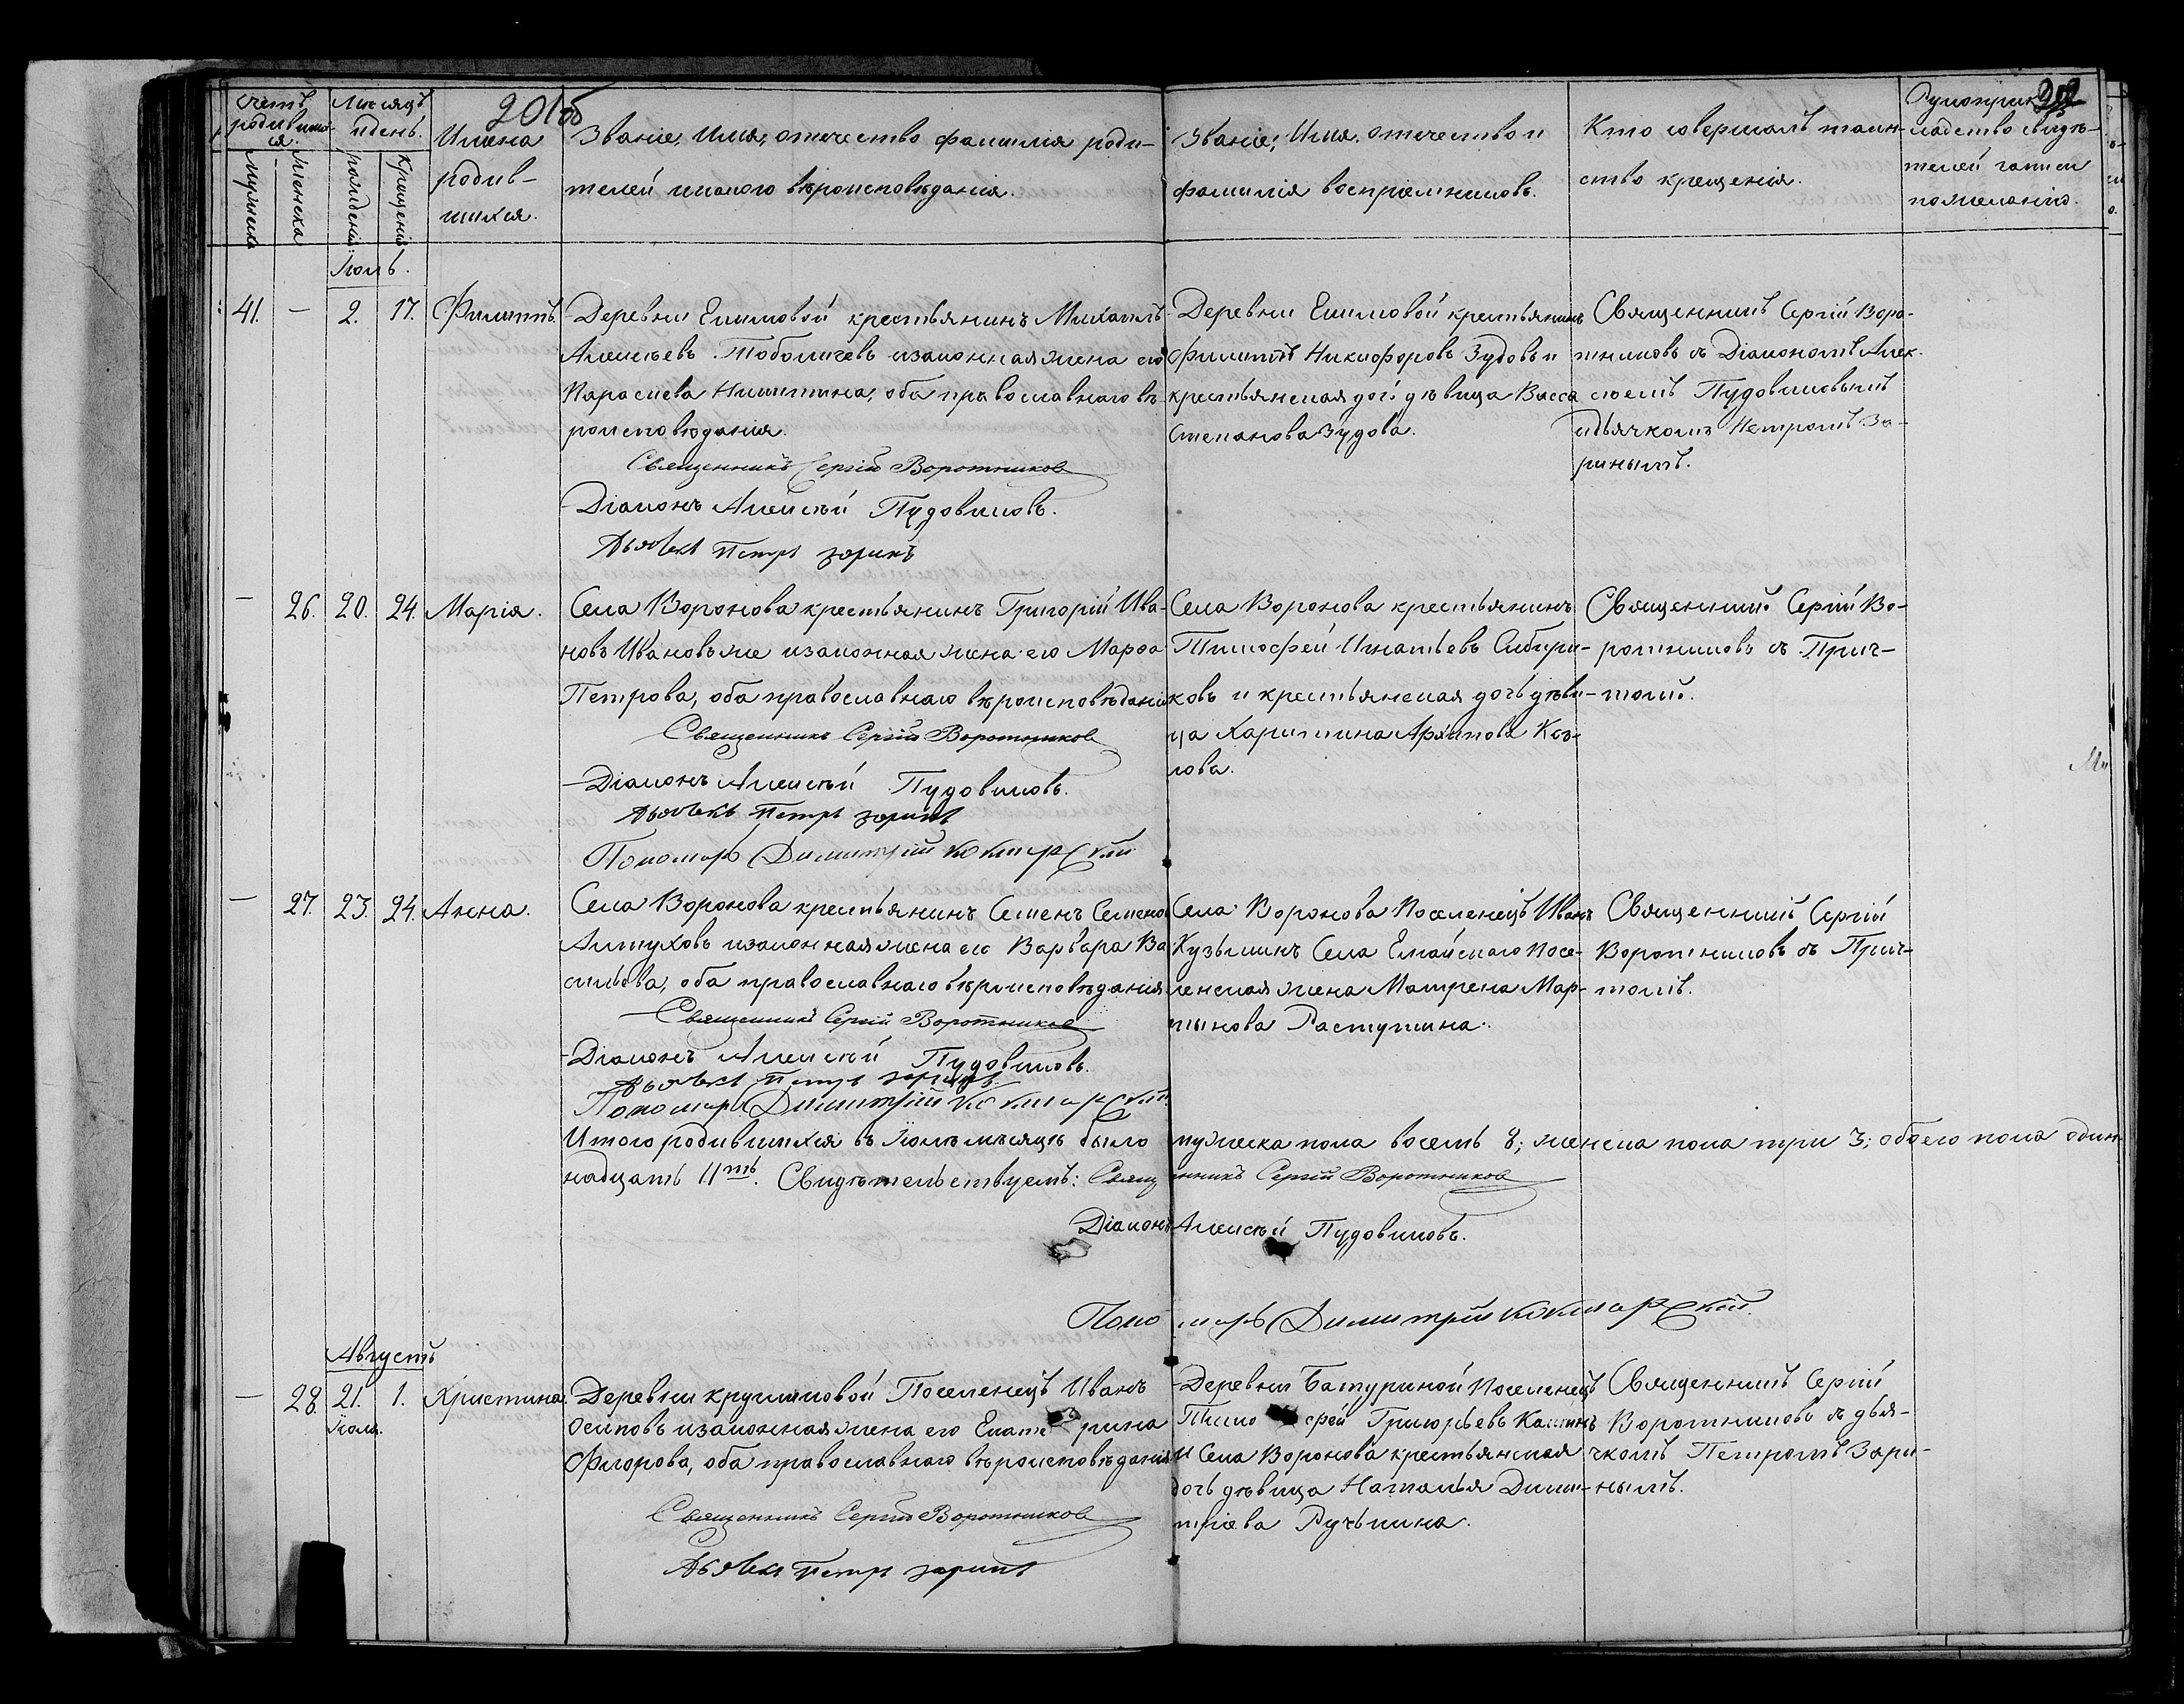 201об
202
Счетъ родившихся.
мужеска
женска
Мѣсяцъ и день.
рожденія:
крещенія
Имена родив-
шихся.
Званіе, Имя, отечество фамилія роди-
телей и какого вѣроисповѣданія.
Званіе, Имя, отечество и
фамилія воспріемниковъ.
Кто совершалъ таин-
ство крещенія.
Рукоприк-
ладство свидѣ-
телей записи
по желанію.
Іюль.
41. - 2. 17. Филиппъ.
Деревни Екимовой крестьянинъ Михаилъ
Алексѣевъ Тоболичевъ и законная жена его
Параскева Никитина, оба православнаго вѣ-
роисповѣданія.
Священникъ Сергій Воротников
Діаконъ Алексѣй Пудовиковъ.
Дьячекъ Петръ Зоринъ
Деревни Екимовой крестьянинъ
Филиппъ Никифоровъ Зудовъ и
крестьянская дочь дѣвица Васса
Степанова Зудова.
Священникъ Сергій Воро-
тниковъ съ Діакономъ Алек-
сѣемъ Пудовиковымъ
и дьячкомъ Петромъ Зо-
ринымъ.
- 26. 20. 24. Марія.
Села Воронова крестьянинъ Григорій Ива-
новъ Ивановъ же и законная жена его Марѳа
Петрова, оба православнаго вѣроисповѣданія
Священникъ Сергій Воротников
Діаконъ Алексѣй Пудовиковъ.
Дьячекъ Петръ Зоринъ
Пономарь Димитрій Кокшарскій
Села Воронова крестьянинъ
Тимофей Игнатьевъ Сибиря-
ковъ и крестьянская дочь дѣви-
ца Харитина Архипова Коз-
лова.
Священникъ Сергій Во-
ротниковъ съ Прич-
томъ.
- 27. 23. 24. Анна.
Села Воронова крестьянинъ Семенъ Семенов
Алтуховъ и законная жена его Варвара Ва
сильева, оба православнаго вѣроисповѣданія
Священникъ Сергій Воротников
Діаконъ Алексѣй Пудовиковъ.
Дьячекъ Петръ Зоринъ.
Пономарь Димитрій Кокшарскій.
Села Воронова Поселенецъ Иванъ
Кузьминъ Села Елгайскаго Посе-
ленская жена Матрена Мар-
тынова Распутина.
Священникъ Сергій
Воротниковъ съ Прич-
томъ.
Итого родившихся въ Іюлѣ мѣсяцѣ было мужеска пола восемь 8; женска пола три 3; обоего пола один-
надцать 11ть. Свидѣтельствуемъ: Священникъ Сергій Воротников
Діаконъ Алексѣй Пудовиковъ.
Пономарь Димитрій Кокшарскій.
Августъ
- 28. 21. 1. Христина.
Іюля.
Деревни Кругликовой Поселенецъ Иванъ
Осиповъ и законная жена его Екатерина
Флорова, оба православнаго вѣроисповѣданія
Священникъ Сергій Воротников
Дьячекъ Петръ Зоринъ
Деревни Батуриной Поселенецъ
Тимофей Григорьевъ
и Села Воронова крестьянская
дочь дѣвица Наталья Дими-
тріева Ручькина.
Священникъ Сергій
Воротниковъ съ дья-
чкомъ Петромъ Зори-
нымъ.